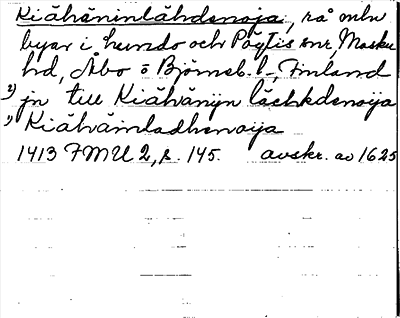 Kiähäninlähdenoja, rå mln
byar i Lundo och Pöytis snr, Masku
hd, Åbo o Björneb. l., Finland
2) jn till Kiähänijn lächkdenoija
1) Kiähäinladhenoija
1413 FMU 2, s. 145. avskr. av 1625